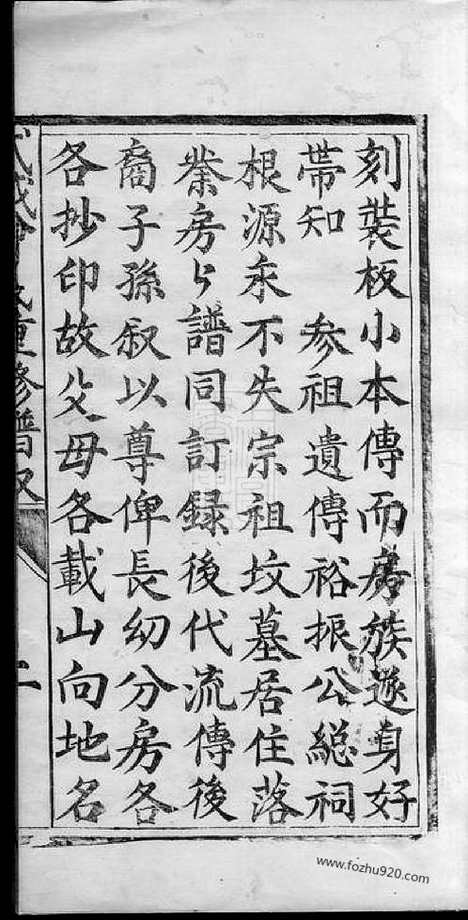 刻裝板小本傳而房族逐身好
帶知　参祖遺傳裕振公総祠
根源永不失宗祖坟墓居住落
業房々譜同訂録後代流傳後
裔子孫叙以尊俾長幼分房各
各抄印故父母各載山向地名
重修譜叙
二
www.fozhu920.com